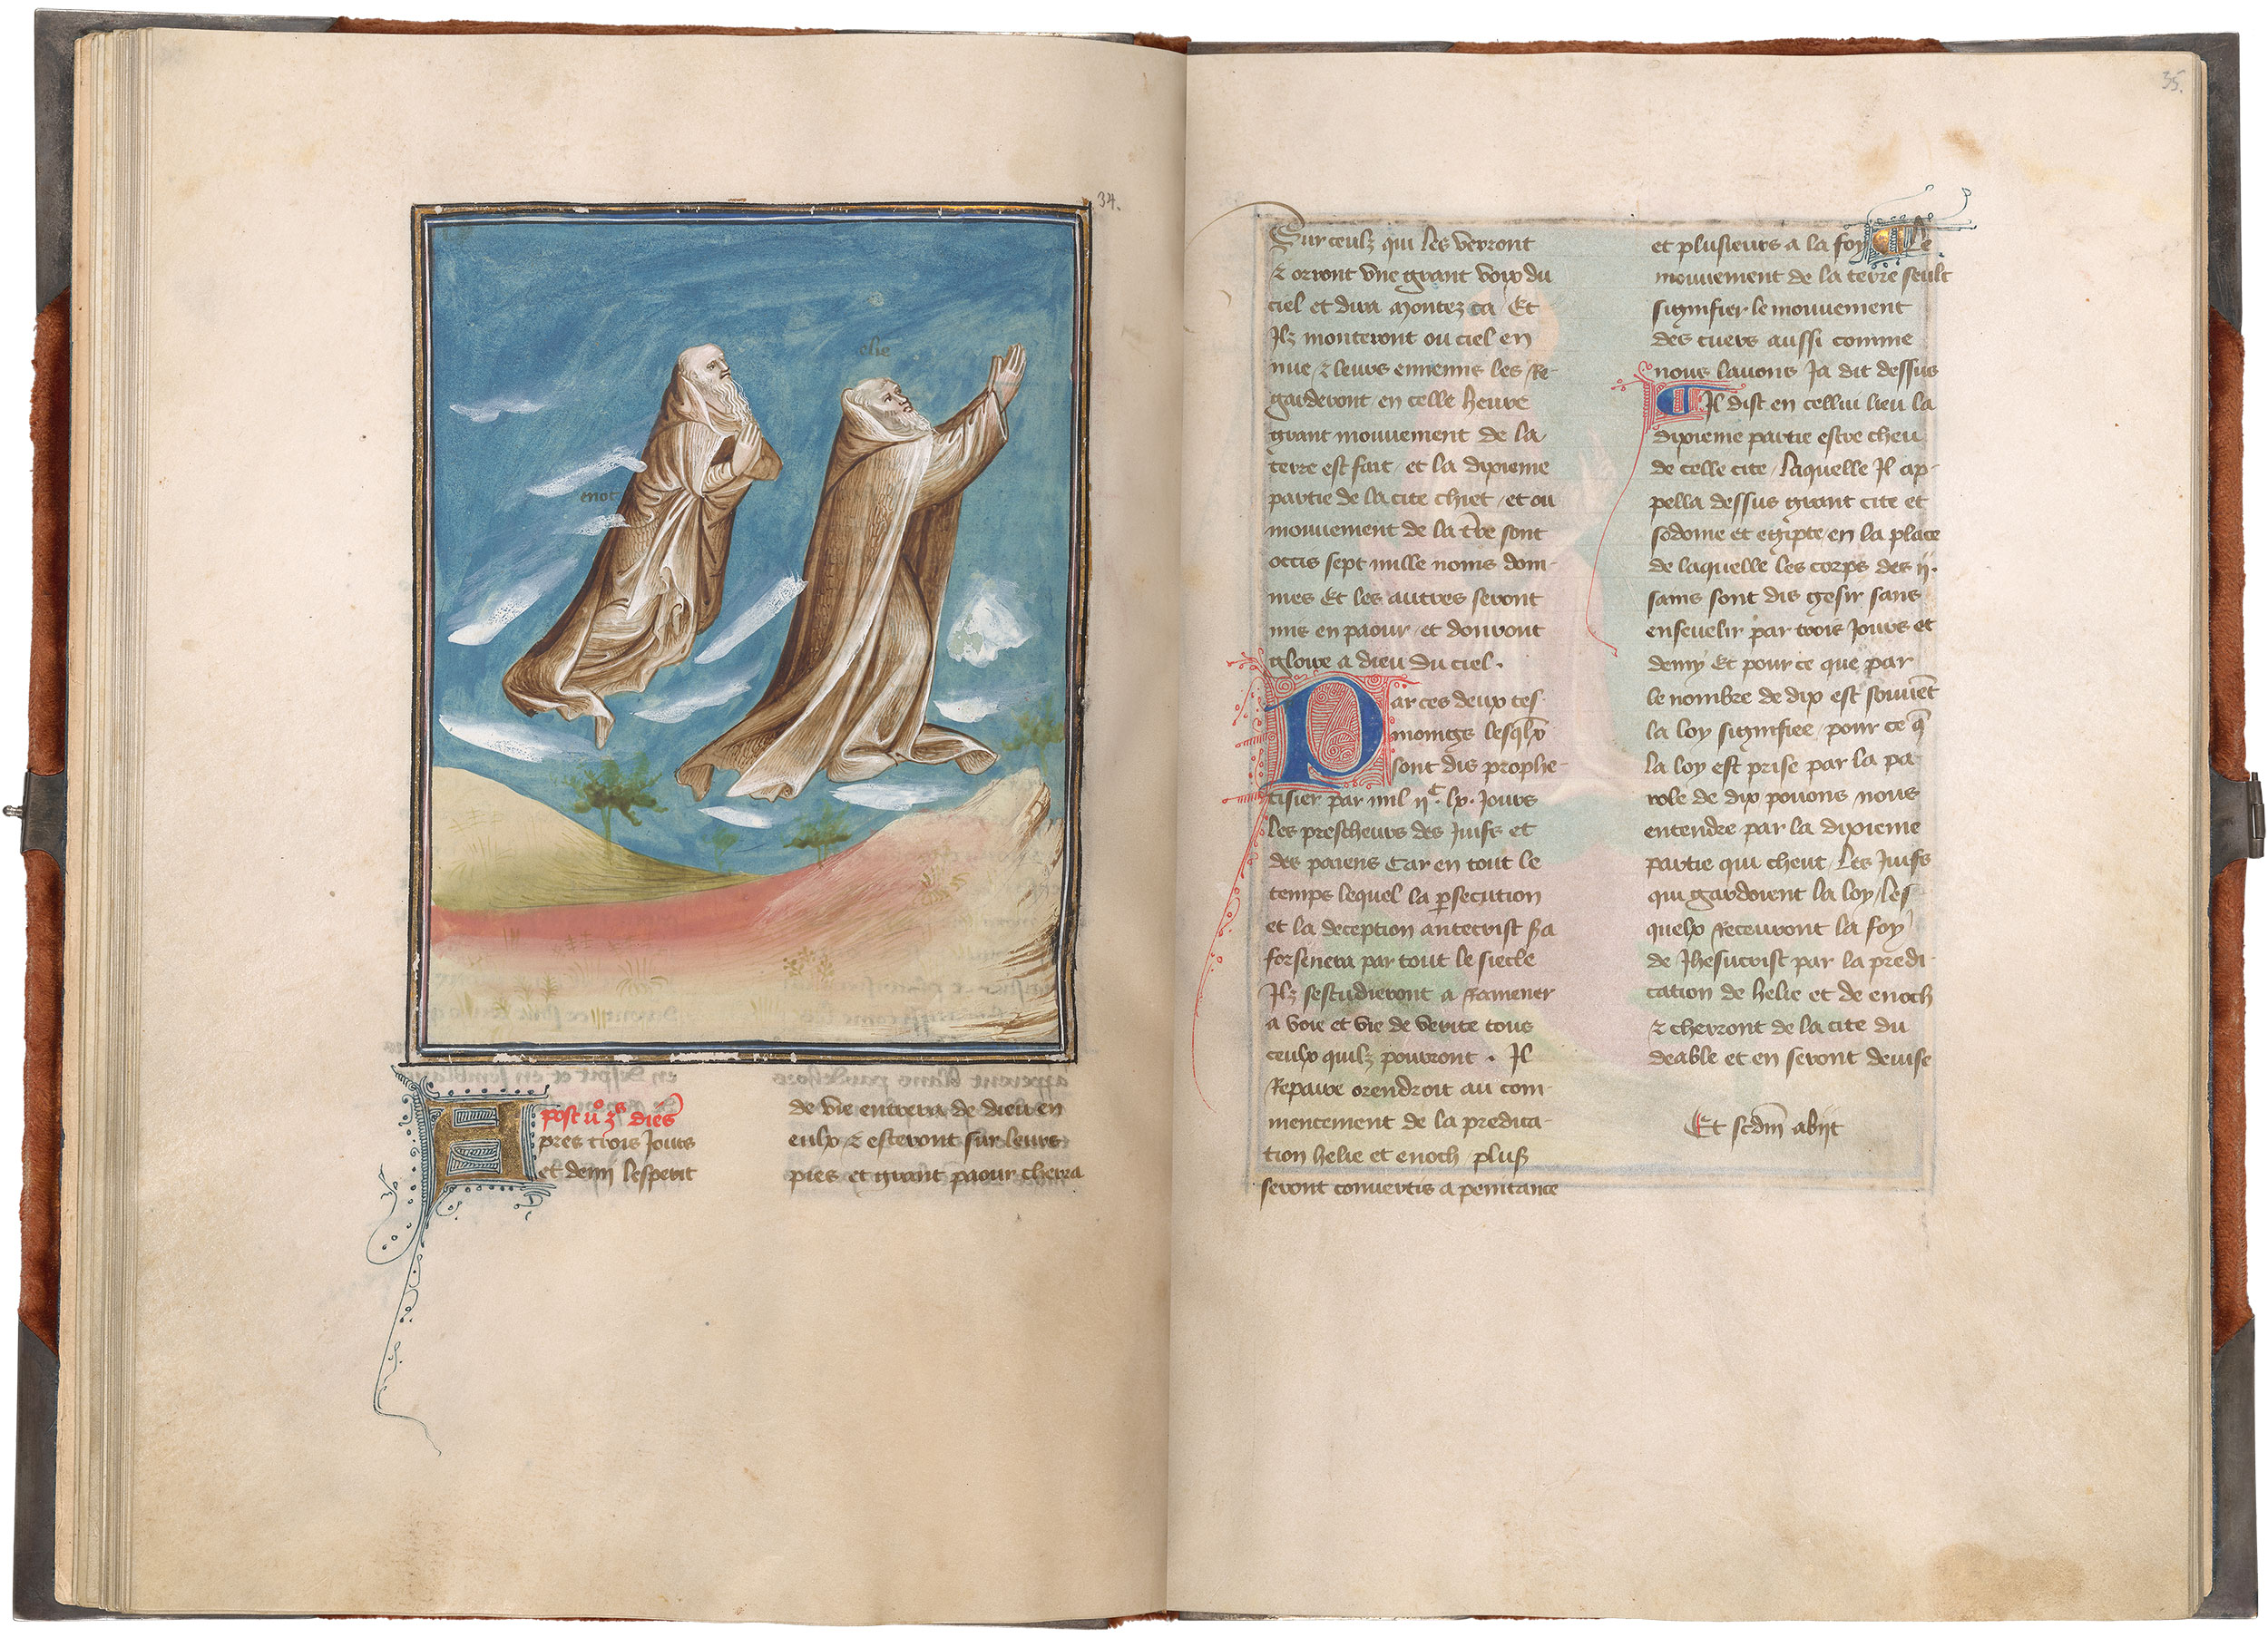 34.
elie
enoc
post iio 3s dies
pres trois Jours
et demi lesperit
de vie entrera de dieu en
eulx & esteront sur leurs
pies et grant paour cherra
35.
Sur ceulz qui les verront
& orront vne grant voix du
ciel et dira montez ca Et
Ilz monteront ou ciel en
nue & leurs ennemis les Re-
garderont en celle heure
grant mouuement de la
terre est fait et la dixieme
partie de la cite chiet et ou
mouuement de la tre sont
occis sept mille noms dom-
mes Et les autres seront
mis en paour et donront
gloire a dieu du ciel .
Par ces deux tes-
moings lesqlx
sont dis prophe-
tisier par mil iic. lx. Jours
les prescheurs des Juifs et
des paiens Car en tout le
temps lequel la psecution
et la deception antecrist
forsenera par tout le siecle
Ilz sestudieront a Ramener
a voie et vie de verite tous
ceulx quilz pourront . Il
Repaire orendroit au com-
mencement de la predica-
tion helie et enoch plus
seront conuertis a penitance
et plusieurs a la foy Le
mouuement de la terre seult
signifier le mouuement
des cuers aussi comme
nous lauons Ja dit dessus
Il dist en cellui lieu la
dixieme partie estre cheu
de celle cite laquelle Il ap-
pella dessus grant cite et
sodome et egipte en la place
de laquelle les corps des ii.
sains sont dis gesir sans
enseuelir par trois Jours et
demy Et pour ce que par
le nombre de dix est souuet
la loy signifiee pour ce q
la loy est prise par la pa-
role de dix pouons nous
entendre par la dixieme
partie qui cheut les Juifs
qui gardoient la loy les
quelx Receuront la foy
de Jhesucrist par la predi-
cation de helie et de enoch
& cherront de la cite du
deable et en seront deuise
Et scdm abiit